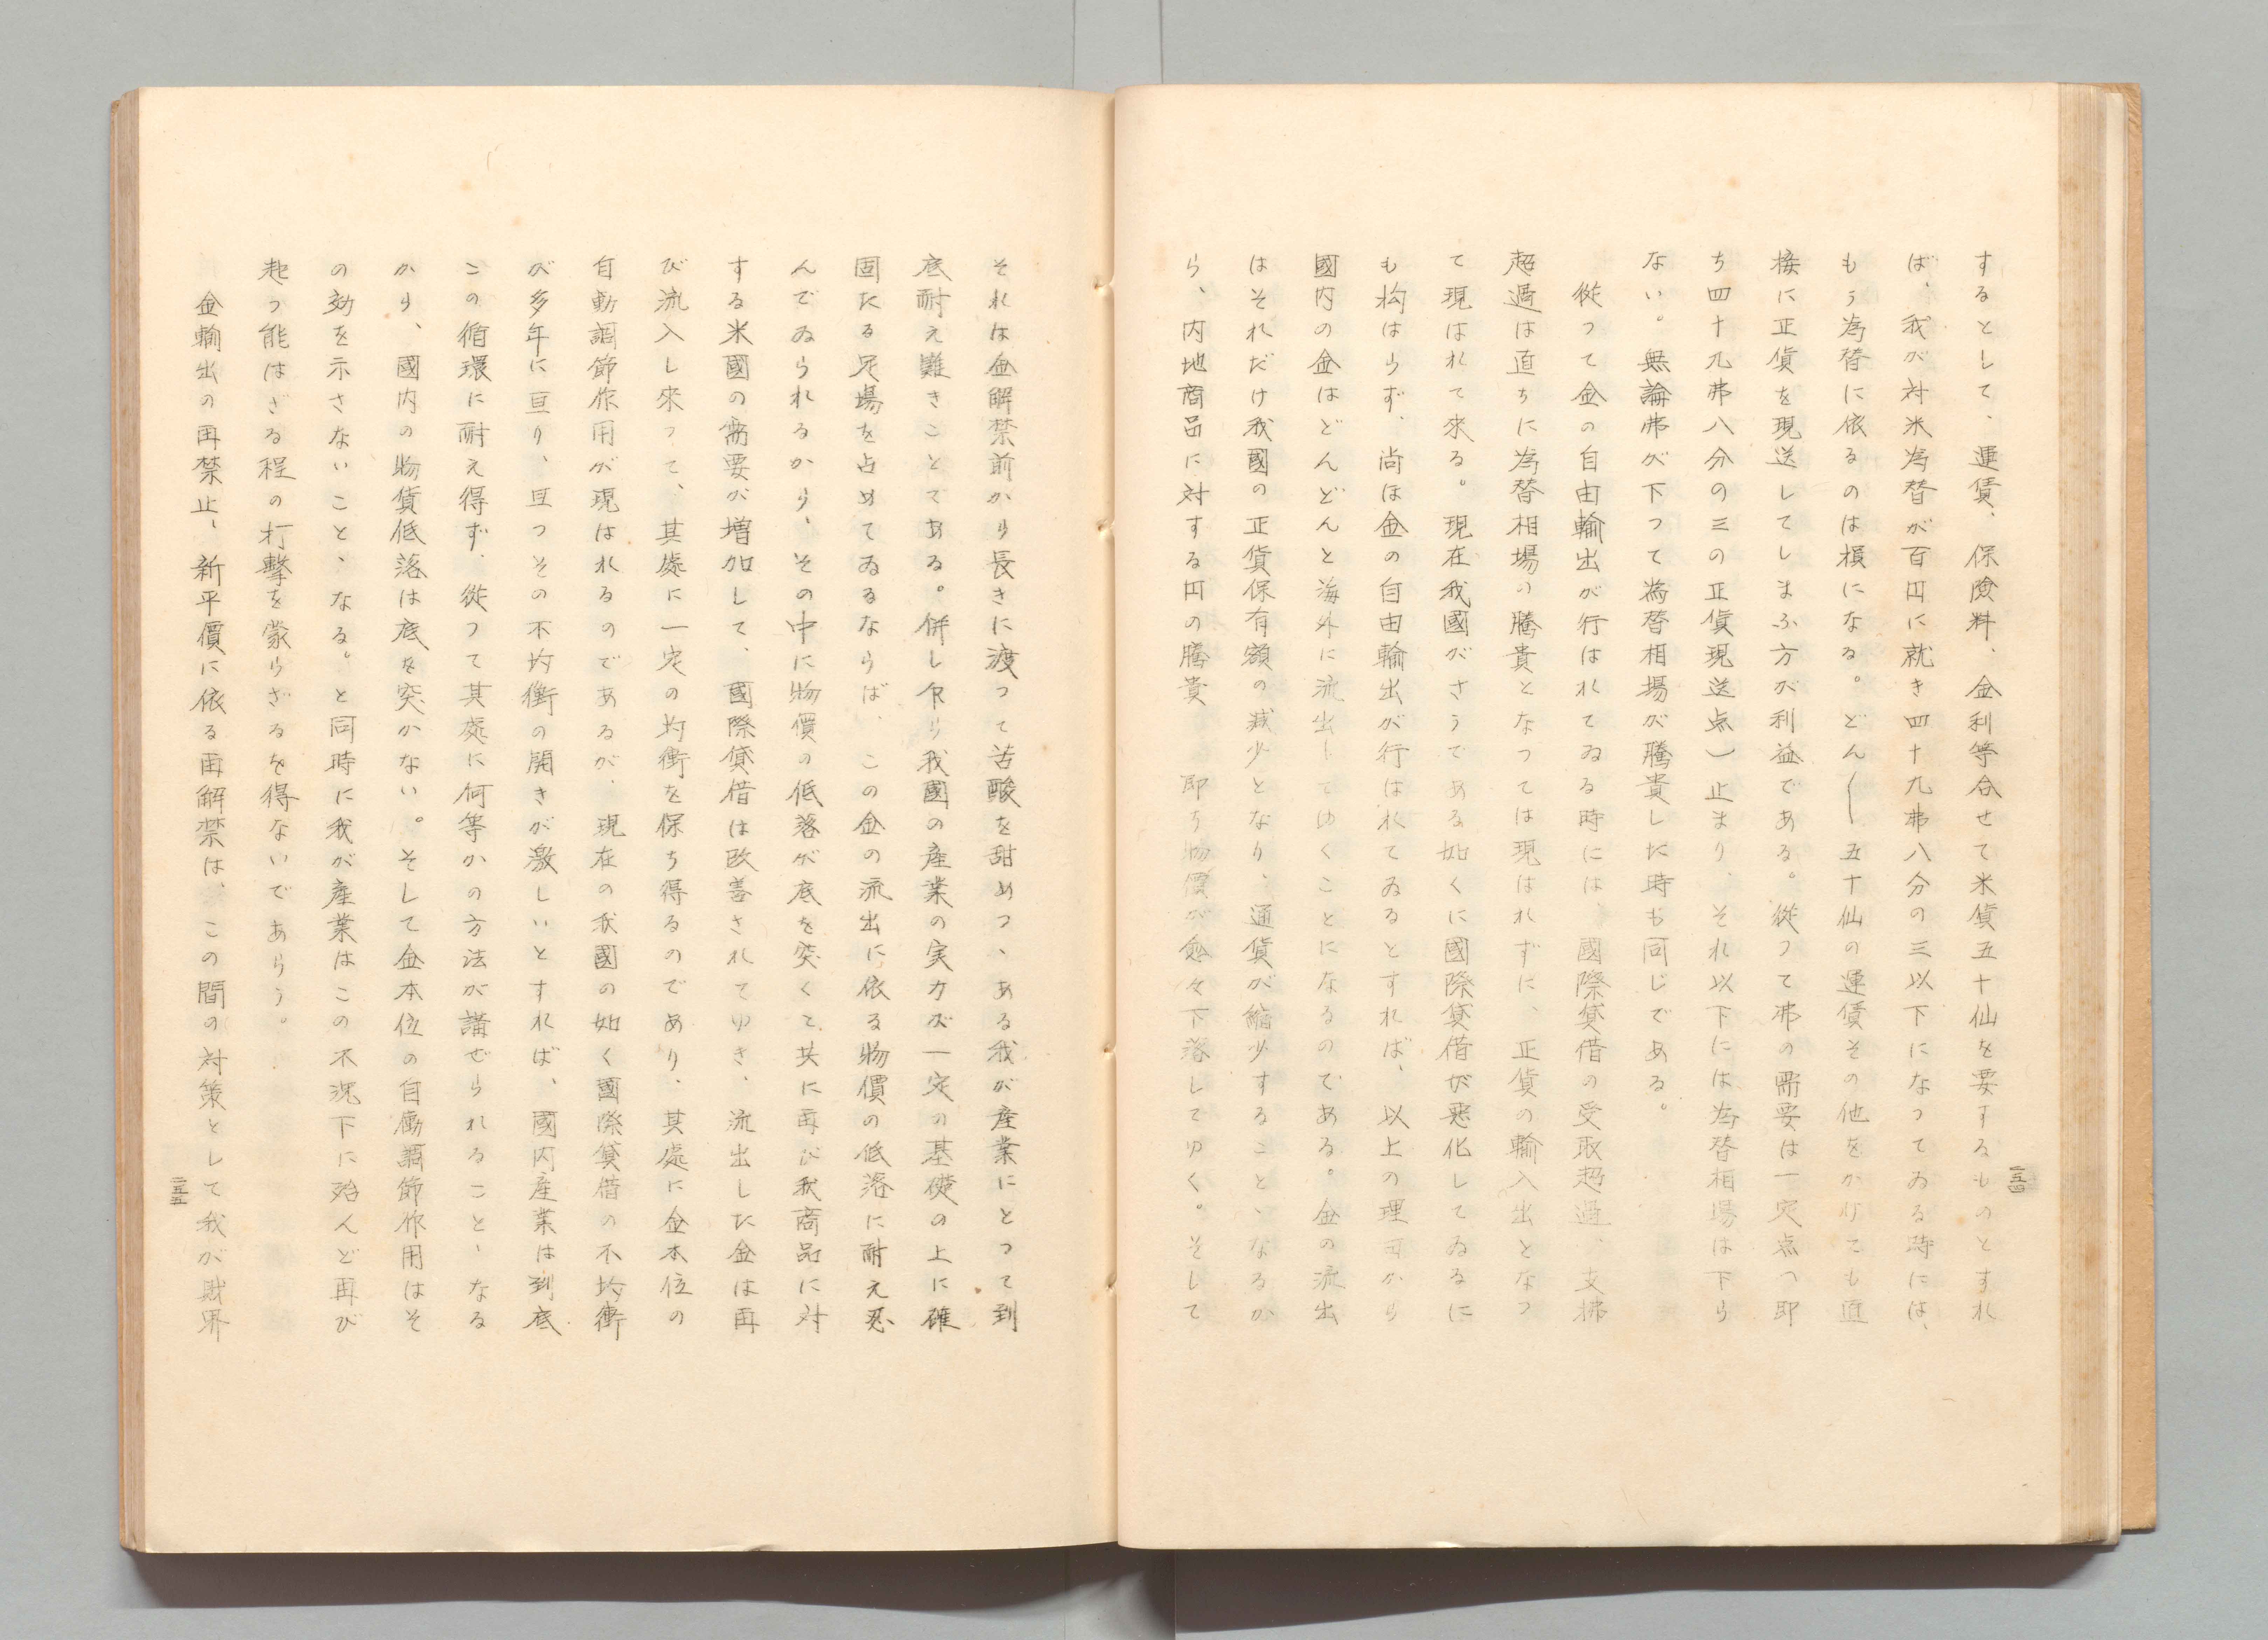 するとして、運賃、保險料、金利等合せて米貨五十仙を要するものとすれ
ば、我が対米為替が百円に就き四十九弗八分の三以下になつてゐる時には、
もう為替に依るのは損になる。どん〳〵五十仙の運賃その他をかけても直
接に正貨を現送してしまふ方が利益である。從つて弗の需要は一定点(即
ち四十九弗八分の三の正貨現送点)止まり、それ以下には為替相場は下ら
ない。無論弗が下つて為替相場が騰貴した時も同じである。
從つて金の自由輸出が行はれてゐる時には、國際貸借の受取超過、支拂
超過は直ちに為替相場の騰貴となつては現はれずに、正貨の輸入出となつ
て現はれて來る。現在我國がさうである如くに國際貸借が悪化してゐるに
も拘はらず、尚ほ金の自由輸出が行はれてゐるとすれば、以上の理由から
國内の金はどんどんと海外に流出してゆくことになるのである。金の流出
はそれだけ我國の正貨保有額の減少となり、通貨が縮少すること、なるか
ら、内地商品に対する円の騰貴 即ち物價が愈々下落してゆく。そして
二五四
それは金解禁前から長きに渡つて苦酸を甜めつゝある我が産業にとつて到
底耐え難きことである。併し乍ら我國の産業の実力が一定の基礎の上に確
固たる足場を占めてゐるならば、この金の流出に依る物價の低落に耐え忍
んでゐられるから、その中に物價の低落が底を突くと共に再び我商品に対
する米國の需要が増加して、國際貸借は改善されてゆき、流出した金は再
び流入し來つて、其處に一定の均衡を保ち得るのであり、其處に金本位の
自動調節作用が現はれるのであるが、現在の我國の如く國際貸借の不均衡
が多年に亘り、且つその不均衡の開きが激しいとすれば、國内産業は到底
この循環に耐え得ず、從つて其處に何等かの方法が講ぜられること、なる
から、國内の物貨低落は底を突かない。そして金本位の自働調節作用はそ
の効を示さないこと、なる。と同時に我が産業はこの不況下に殆んど再び
起つ能はざる程の打撃を蒙らざるを得ないであらう。
金輸出の再禁止、新平價に依る再解禁は、この間の対策として我が財界
二五五